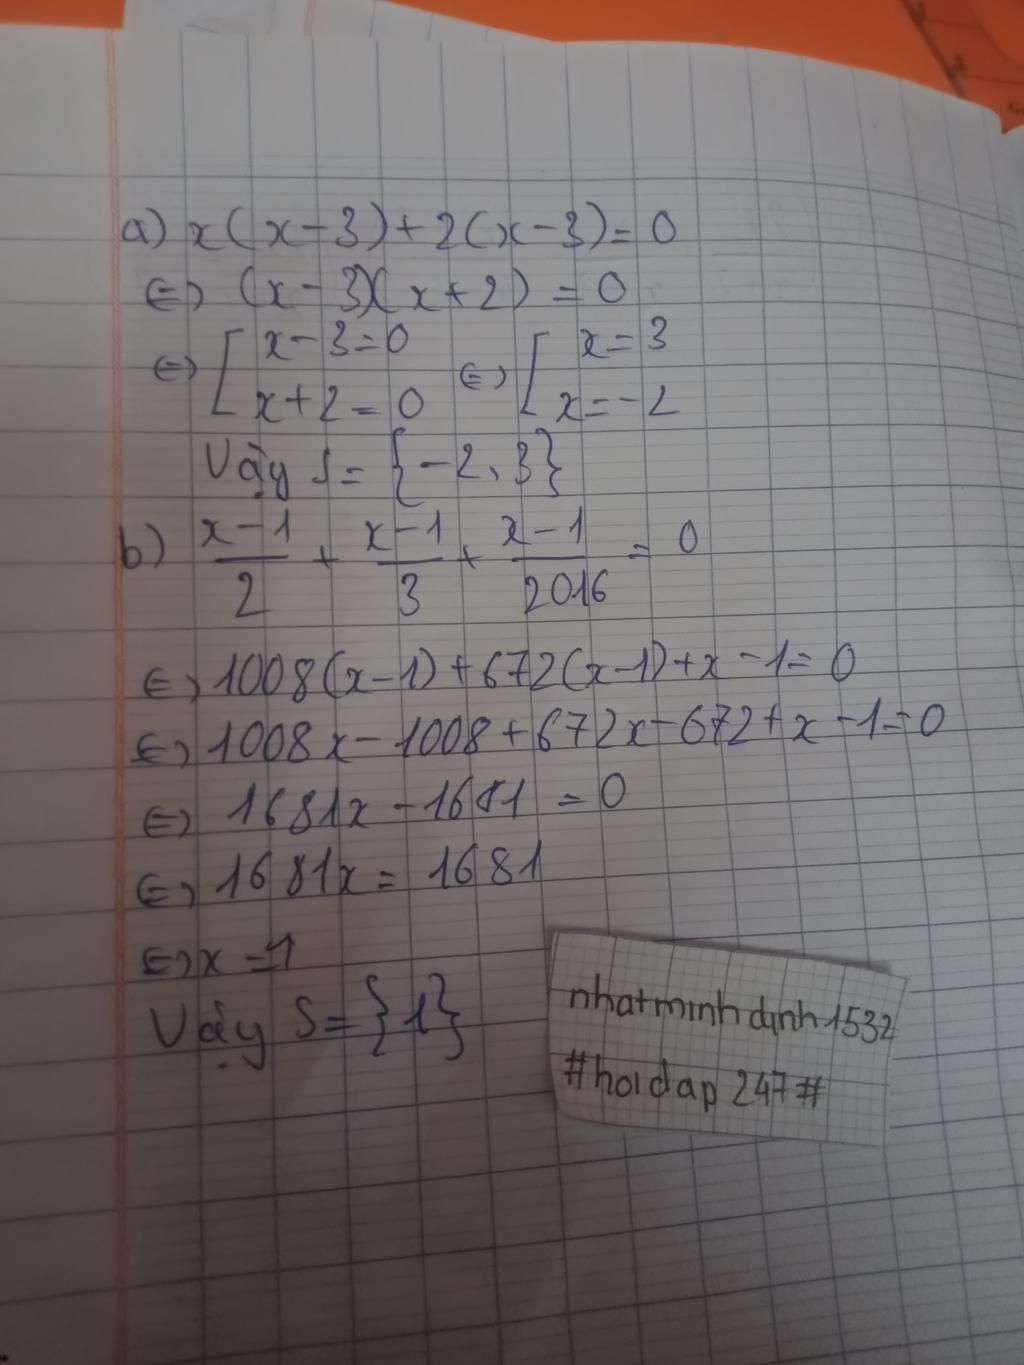 a) x(x-3)+2(x-3)=0
⇔ (x-3)(x+2)=0
⇔ [ x-3=0 ⇔ [ x=3
x+2=0 x=-2
Vậy S={-2,3}
b) x-1/2 + x-1/3 + x-1/2016 = 0
⇔ 1008(x-1)+672(x-1)+x-1=0
⇔ 1008x-1008+672x-672+x-1=0
⇔ 1681x-1681=0
⇔ 1681x=1681
⇔ x=1
Vậy S={1}
nhatminhdinh1532
#hoidap247#